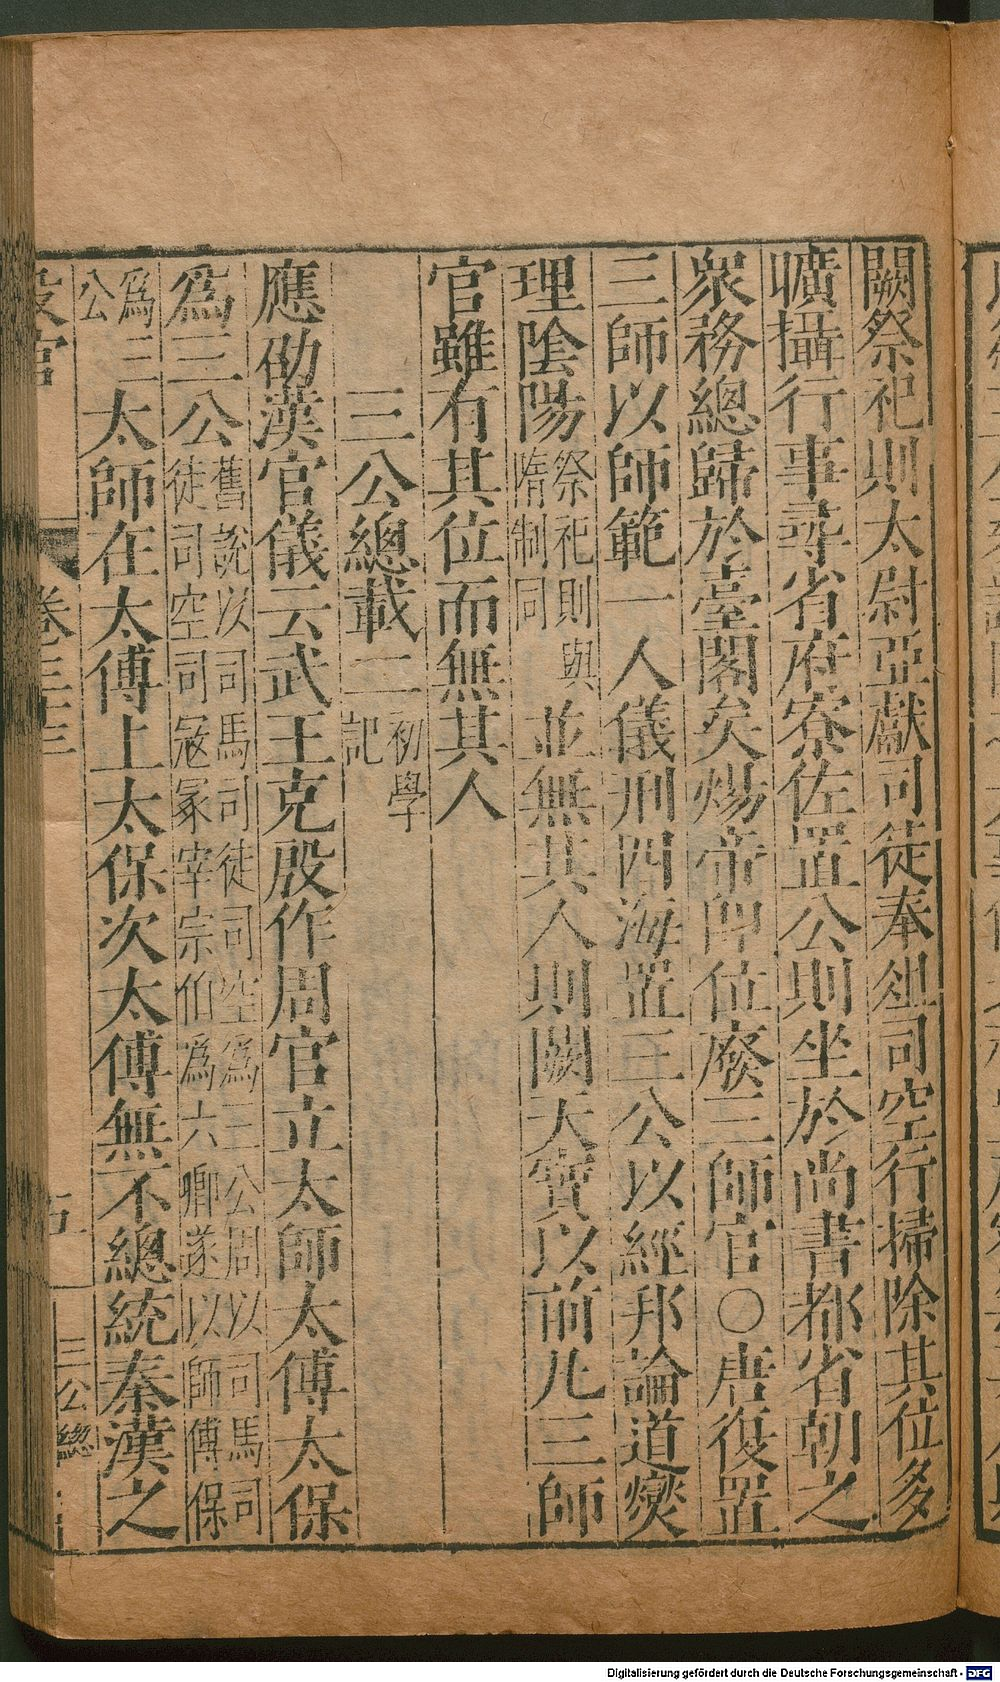 闕祭祀則太尉亞獻司徒奉俎司空行掃除其位多
曠攝行事尋省府寮佐置公則坐於尚書都省朝之
衆務總歸於臺閣矣煬帝即位廢三師官○唐復置
三師以師範一人儀刑四海置三公以經邦論道燮
理陰陽祭祀則與隋制同並無其人則闕天寶以前凡三師
官雖有其位而無其人
三公總載二初學記
應劭漢官儀云武王克殷作周官立太師太傅太保
爲三公舊說以司馬司徒司空爲三公周以司馬司徒司空司冦冢宰宗伯爲六卿遂以師傅保
爲三公太師在太傅上太保次太傅無不總統秦漢之
設官
卷三十三
三公總
Digitalisierung gefördert durch die Deutsche Forschungsgemeinschaft - DFG